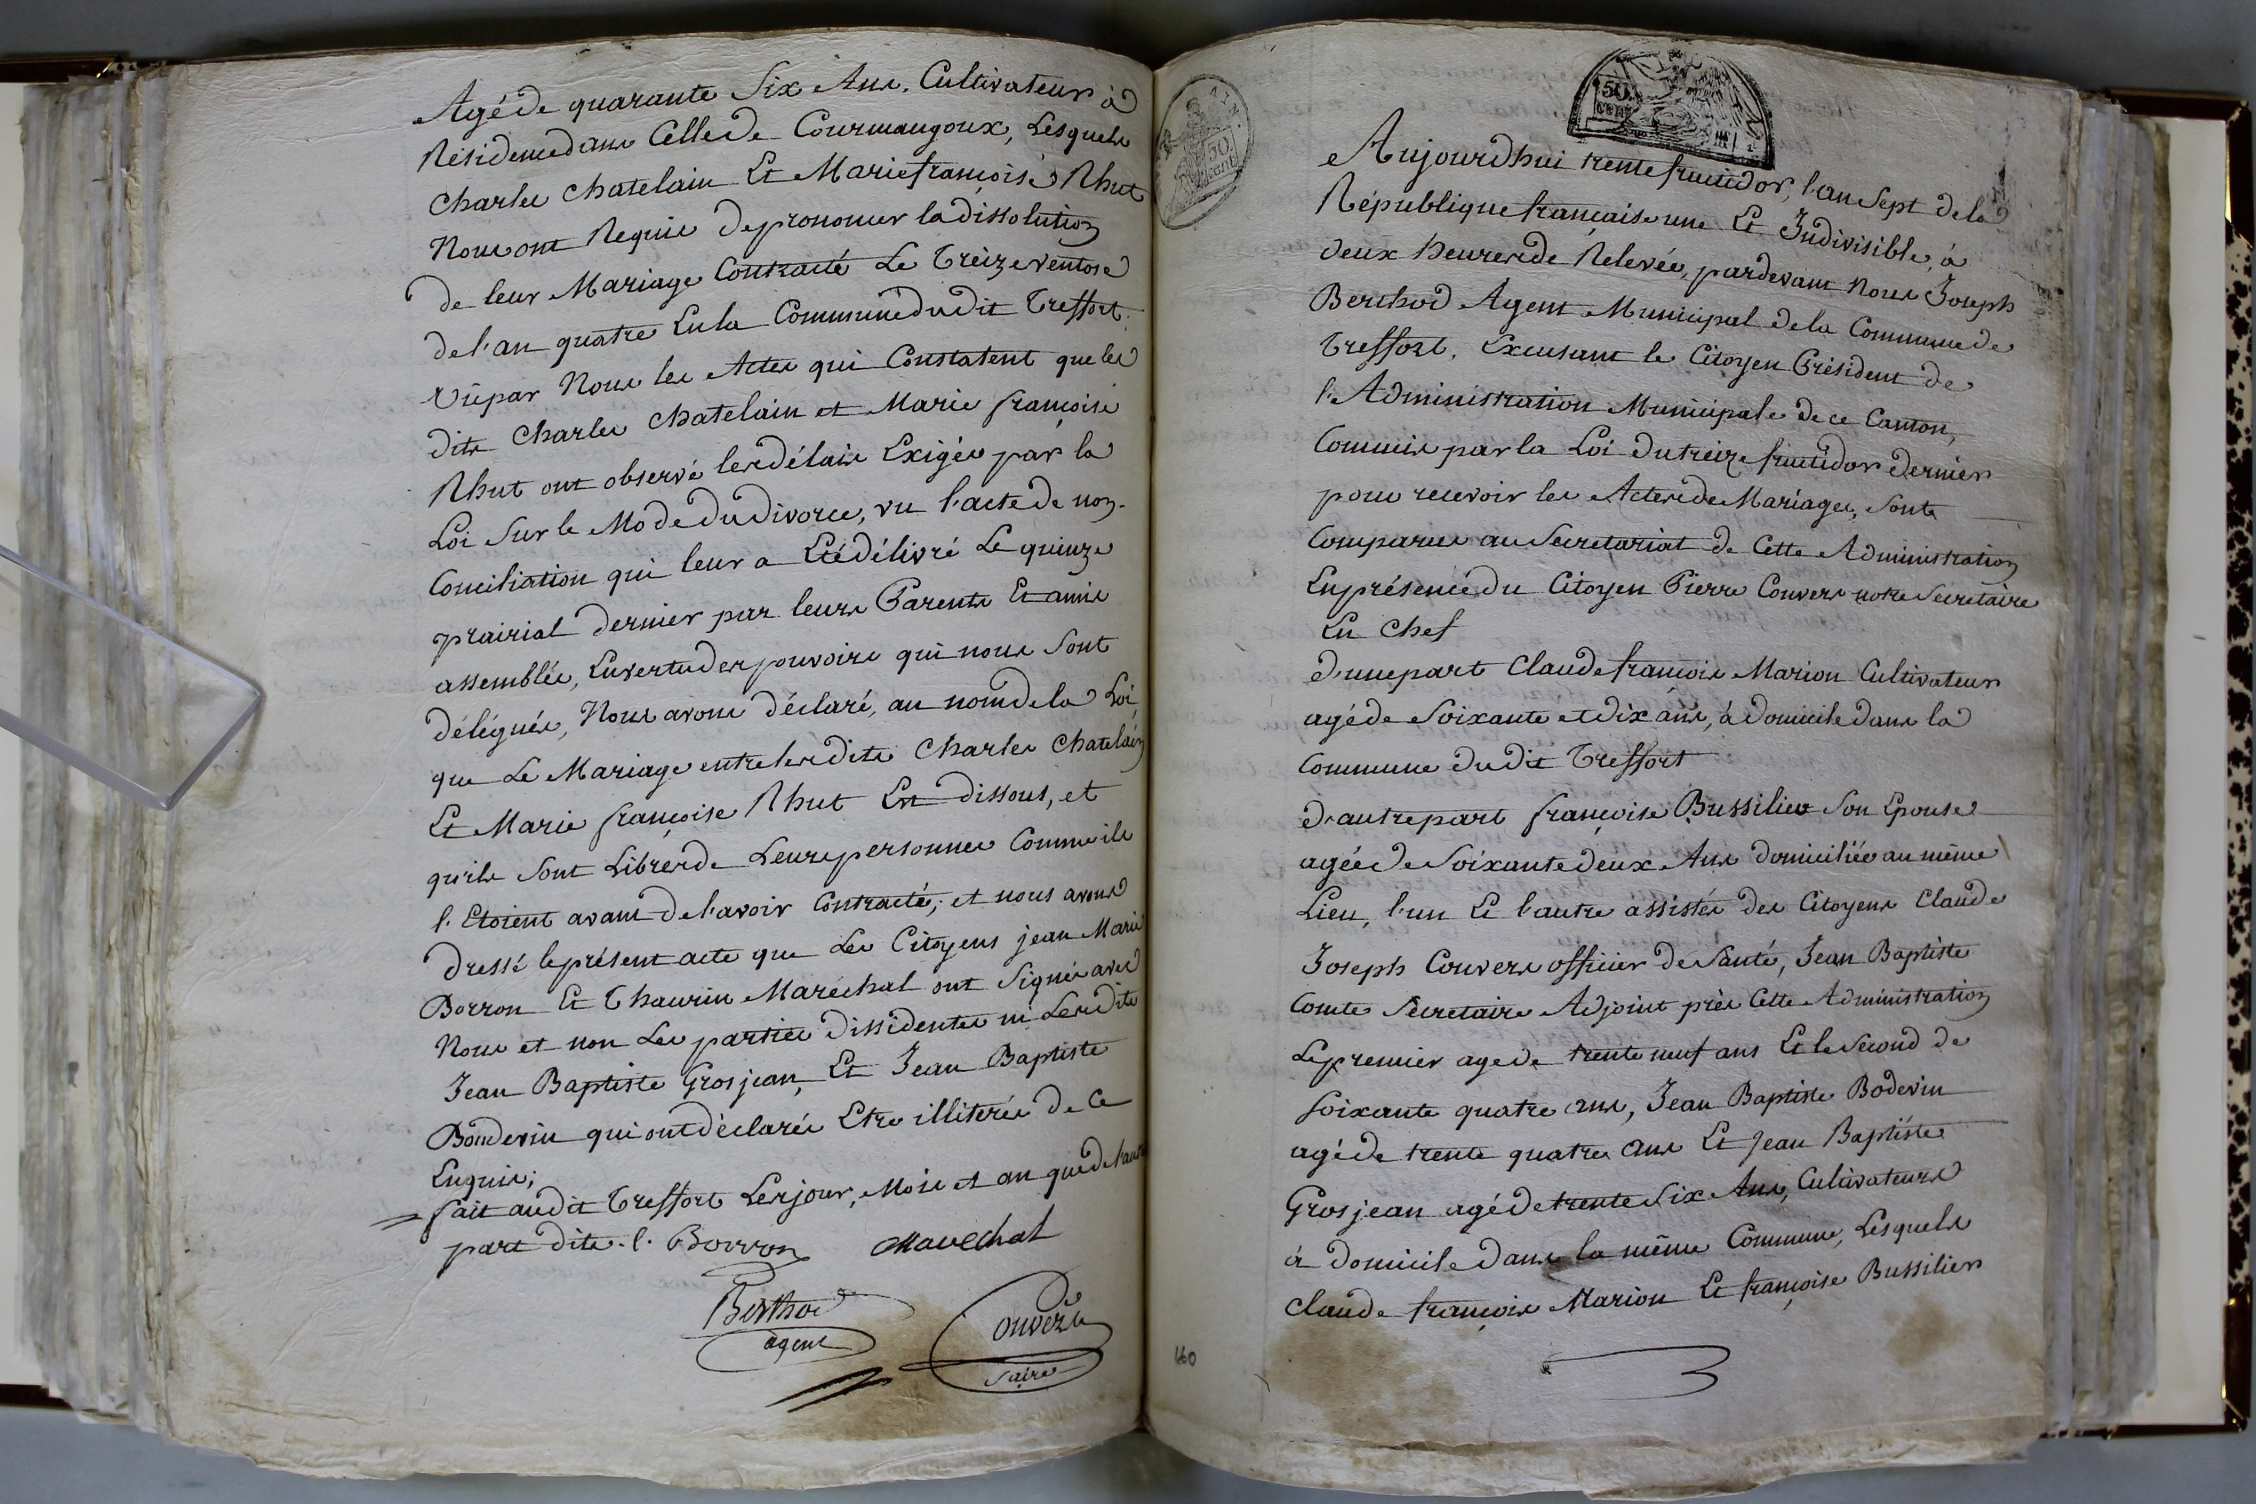 Agé de quarante Six Ans, Cultivateur à
Résidence dans Celle de Courmangoux, Lesquels
Charles Chatelain Et Marie françoise Rhut
Nous ont Requis de prononcer la dissolution
de leur Mariage Contracté Le Treize ventose
de l'an quatre En la Commune dudit Treffort.
Vû par Nous les Actes qui Constatent que les
dits Charles Chatelain et Marie françoise
Rhut ont observé les délais Exigés par la
Loi Sur le Mode du divorce, vu l'acte de non-
Conciliation qui leur a Eté délivré Le quinze
prairial dernier par leurs Parents Et amis
assemblés, En vertu des pouvoirs qui nous Sont
délégués, Nous avons déclaré, au nom de la Loi,
que Le Mariage entre lesdits Charles Chatelain
Et Marie françoise Rhut Est dissous, et
qu'ils Sont Libres de Leurs personnes Comme ils
l'Etoient avant de l'avoir Contracté; et nous avons
dressé le présent acte que Les Citoyens jean Marie
Borron Et Thaurin Maréchal ont Signés avec
Nous et non Les parties dissidentes ni Lesdits
Jean Baptiste Grosjean, Et Jean Baptiste
Boudevin qui ont déclarés Etre illiterés de ce
Enquis;
fait audit Treffort Les jour, Mois et an que de l'autre
part dits. l. Borron Marechal
Berthod
agent
Convers
S.aire
AIN.
50
cent
50
CENT
Aujourdhui trente fructidor, l'an Sept de la
République française une Et Indivisible, à
deux heures de Relevée, pardevant Nous Joseph
Berthod Agent Municipal de la Commune de
Treffort, Excusant le Citoyen Président de
l'Administration Municipale de ce Canton,
Commis par la Loi du treize fructidor dernier
pour recevoir les Actes de Mariages, Sont
Comparus au Secretariat de Cette Administration
En présence du Citoyen Pierre Convers notre Secretaire
En Chef
d'une part Claude françois Marion Cultivateur
agé de Soixante et dix ans, à domicile dans la
Commune dudit Treffort
d'autre part françoise Bussilier Son Epouse
agée de Soixante deux Ans domiciliée au même
Lieu, l'un Et l'autre assistés des Citoyens Claude
Joseph Convers officier de Santé, Jean Baptiste
Comte Secretaire Adjoint près Cette Administration
Le premier age de trente neuf ans Et le Second de
Soixante quatre ans, Jean Baptiste Bodevin
agé de trente quatre ans Et Jean Baptiste
Grosjean agé de trente Six Ans, Cultivateurs
à domicile dans la même Commune, Lesquels
Claude françois Marion Et françoise Bussilier
160